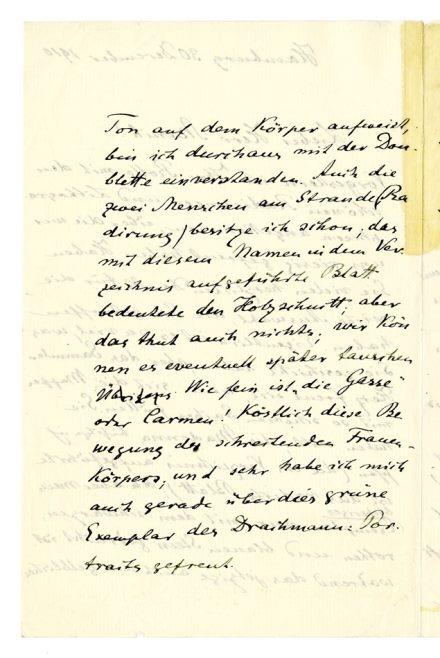 Ton auf dem Körper aufweist,
bin ich durchaus mit der Dou-
blette einverstanden. Auch die
zwei Menschen am Strande (Ra
dirung) besitze ich schon; das
mit diesem Namen in dem Ver
zeichnis aufgeführte Blatt
bedeutete den Holzschnitt, aber
das thut auch nichts, wir kön
nen es eventuell später tauschen
Übrigens: Wie fein ist „die Gasse"
oder Carmen! Köstlich diese Be
wegung des schreitenden Frauen-
körpers, und sehr habe ich mich
auch gerade über dies grüne
Exemplar des Drachmann-Por-
traits gefreut.